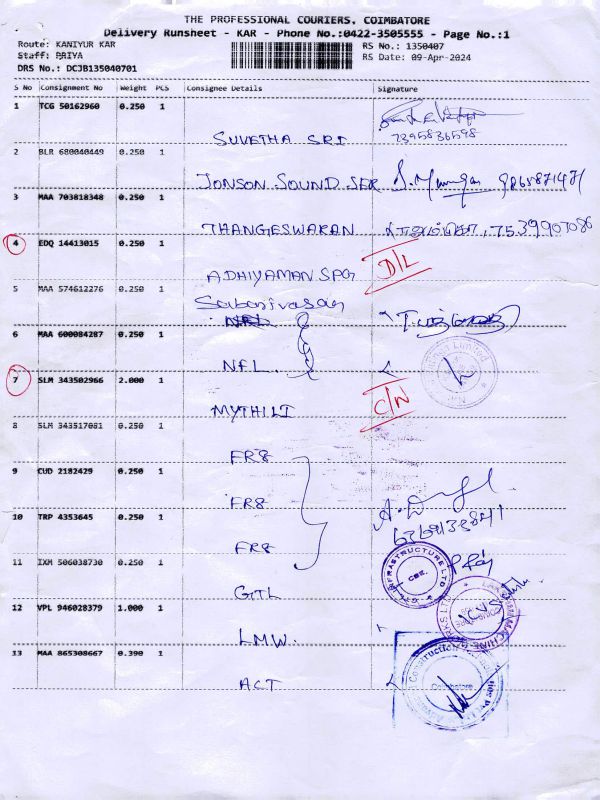 THE PROFESSIONAL COURIERS, COIMBATORE
Delivery Runsheet - KAR - Phone No.:0422-3505555 - Page No.:1
Route: KANIYUR KAR RS No.: 1350407
Staff: PRIYA RS Date: 09-Apr-2024
DRS No.: DCJB135040701
S No Consignment No Weight PCS Consignee Details Signature
1 TCG 50162960 0.250 1
SUVETHA SRI 7395836598
2 BLR 680040449 0.250 1
JONSON SOUND SER
3 MAA 703818348 0.250 1
THANGESWARAN 7539907086
4 EDQ 14413015 0.250 1
ADHIYAMAN SPG D/L
5 MAA 574612276 0.250 1
Sabanivasan
6 MAA 600084287 0.250 1
NFL.
7 SLM 343502966 2.000 1
MYTHILI C/N
8 SLM 343517081 0.250 1
FR8
9 CUD 2182429 0.250 1
FR8
10 TRP 4353645 0.250 1
FR8
11 IXM 506038730 0.250 1
GTL
GTL INFRASTRUCTURE LTD
CBE.
12 VPL 946028379 1.000 1
LMW.
13 MAA 865308667 0.390 1
ACT
Coimbatore